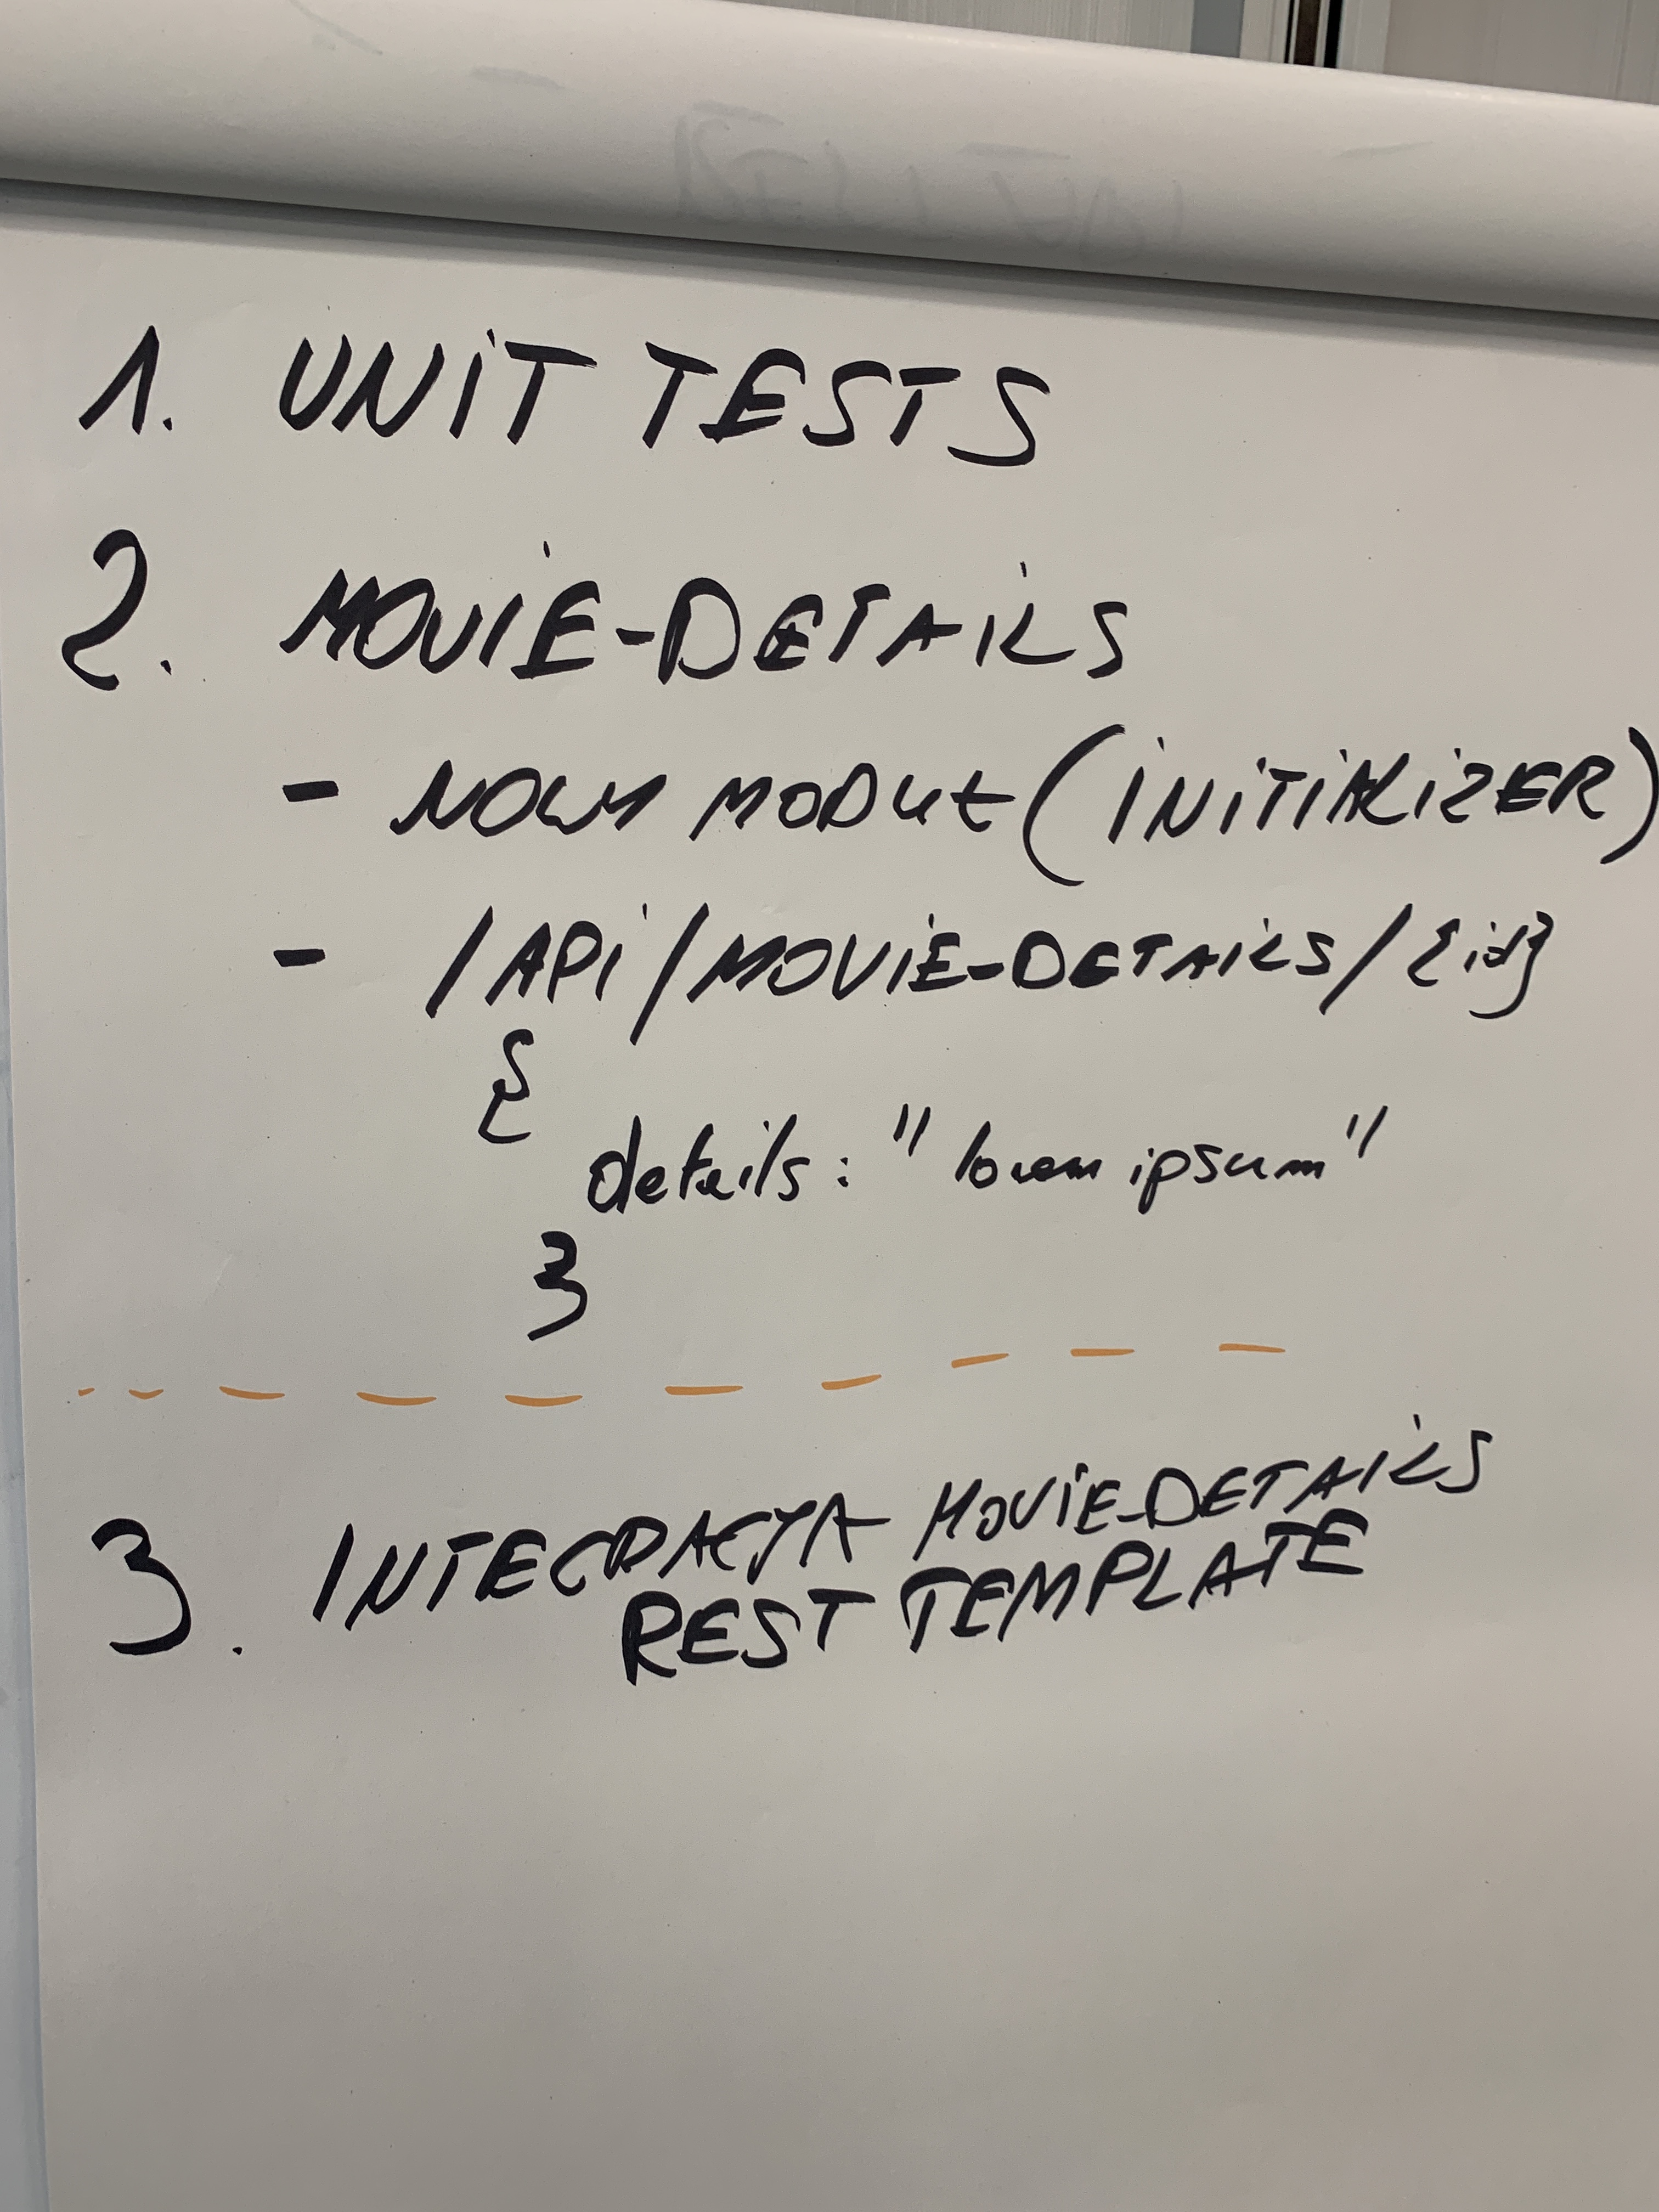 1. UNIT TESTS
2. MOVIE-DETAILS
- NOWY MODUŁ (INITIALIZER)
- /API/MOVIE-DETAILS/{id}
{
details: "lorem ipsum"
}
3. INTEGRACJA MOVIE-DETAILS
REST TEMPLATE